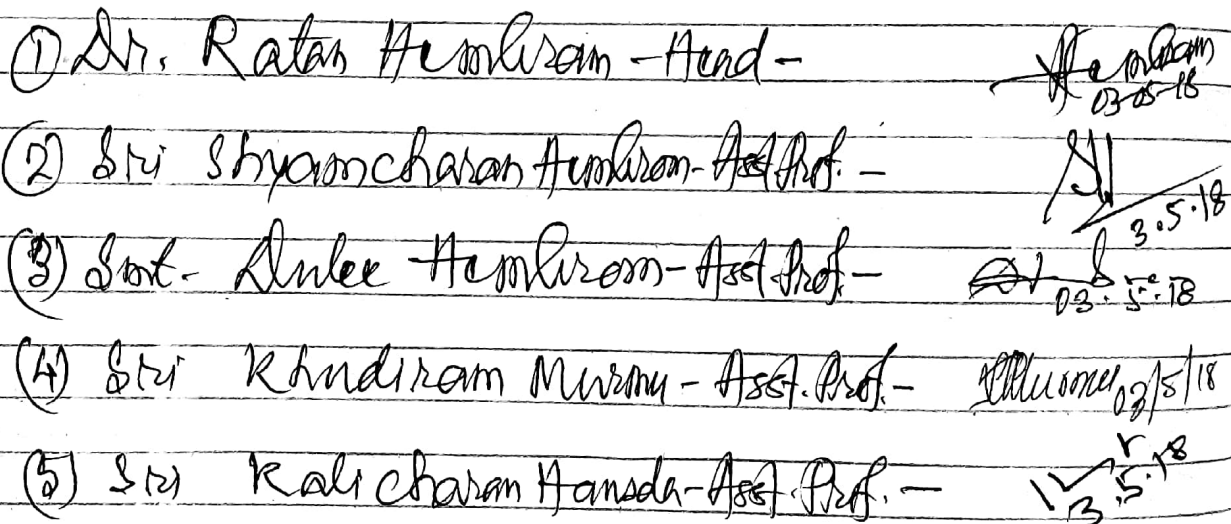 ① Dr. Ratan Hembram - Head - Hembram 03-05-18
② Sri Shyamcharan Hembrom - Asst. Prof. - 3.5.18
(3) Smt. Dulee Hembrom - Asst. Prof. - 03.5.18
(4) Sri Khudiram Murmu - Asst. Prof. - Murmu 03/5/18
(5) Sri Kali charan Hansda - Asst. Prof. - 3.5.18